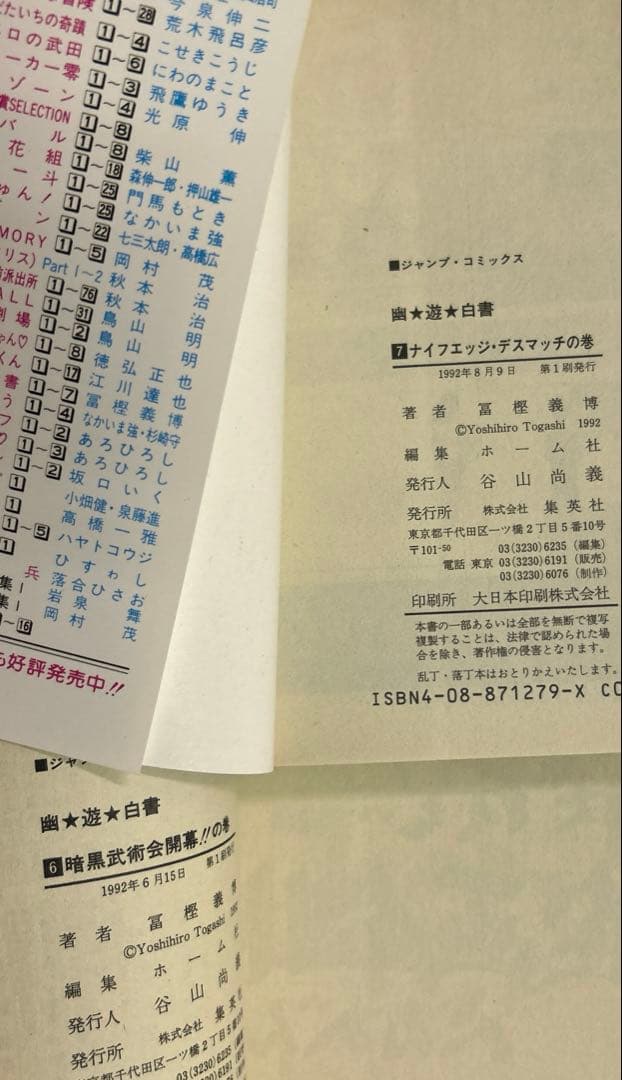 今泉伸二
だいちの奇蹟 1～28 荒木飛呂彦
ロの武田 1～4 こせきこうじ
ーカー零 1～6 にわのまこと
ゾーン 1～3 飛鷹ゆうき
SELECTION 1～4 光原伸
バル 1～8
花組 1～8 柴山薫
一斗 1～18 森伸一郎・押山雄一
ゅん! 1～25 門馬もとき
ン 1～25 なかいま強
MORY 1～22 七三太朗・高橋広
リス) Part 1～2 1～5 岡村茂
派出所 1～76 秋本治
ALL 1～31 秋本治
劇場 1～2 鳥山明
ゃん♡ 1～8 鳥山明
くん 1～17 徳弘正也
書 1～7 江川達也
う 1～4 冨樫義博
フ 1～2 なかいま強・杉崎守
1～3 あろひろし
1～2 あろひろし
1 坂口いく
1 小畑健・泉藤進
1～5 高橋一雅
1 ハヤトコウジ
ひすわし
兵 落合ひさお
集I 岩泉舞
～16 岡村茂
も好評発売中!!
■ジャンプ・コミックス
幽★遊★白書
7ナイフエッジ・デスマッチの巻
1992年8月9日 第1刷発行
著者 冨樫義博
©Yoshihiro Togashi 1992
編集 ホーム社
発行人 谷山尚義
発行所 株式会社 集英社
東京都千代田区一ツ橋2丁目5番10号
〒101-50 03(3230)6235(編集)
電話 東京 03(3230)6191(販売)
03(3230)6076(制作)
印刷所 大日本印刷株式会社
本書の一部あるいは全部を無断で複写
複製することは、法律で認められた場
合を除き、著作権の侵害となります。
乱丁・落丁本はおとりかえいたします。
ISBN4-08-871279-X C0
■ジャン
幽★遊★白書
6暗黒武術会開幕!!の巻
1992年6月15日 第1刷発行
著者 冨樫義博
©Yoshihiro Togashi 1992
編集 ホーム社
発行人 谷山尚義
発行所 株式会社 集英社
東京都千代田区一ツ橋2丁目5番
03(3230)6235(編集
6191(販